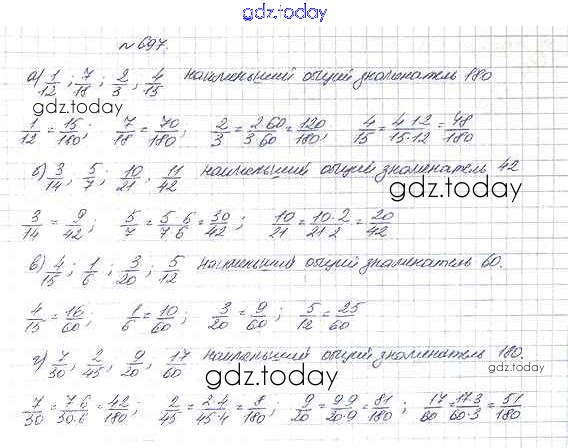 gdz.today
№ 697.
а) 1/12 ; 7/18 ; 2/3 , 4/15 наименьший общий знаменатель 180
gdz.today
1/12 = 15/180 ; 7/18 = 70/180 ; 2/3 = 2·60/3·60 = 120/180 ; 4/15 = 4·12/15·12 = 48/180
б) 3/14 ; 5/7 ; 10/21 , 11/42 наименьший общий знаменатель 42
gdz.today
3/14 = 9/42 ; 5/7 = 5·6/7·6 = 30/42 ; 10/21 = 10·2/21·2 = 20/42
в) 4/15 ; 1/6 ; 3/20 ; 5/12 наименьший общий знаменатель 60.
4/15 = 16/60 ; 1/6 = 10/60 ; 3/20 = 9/60 ; 5/12 = 25/60
г) 7/30 , 2/45 , 9/20 , 17/60 наименьший общий знаменатель 180.
gdz.today
7/30 = 7·6/30·6 = 42/180 ; 2/45 = 2·4/45·4 = 8/180 ; 9/20 = 9·9/20·9 = 81/180 ; 17/60 = 17·3/60·3 = 51/180
gdz.today